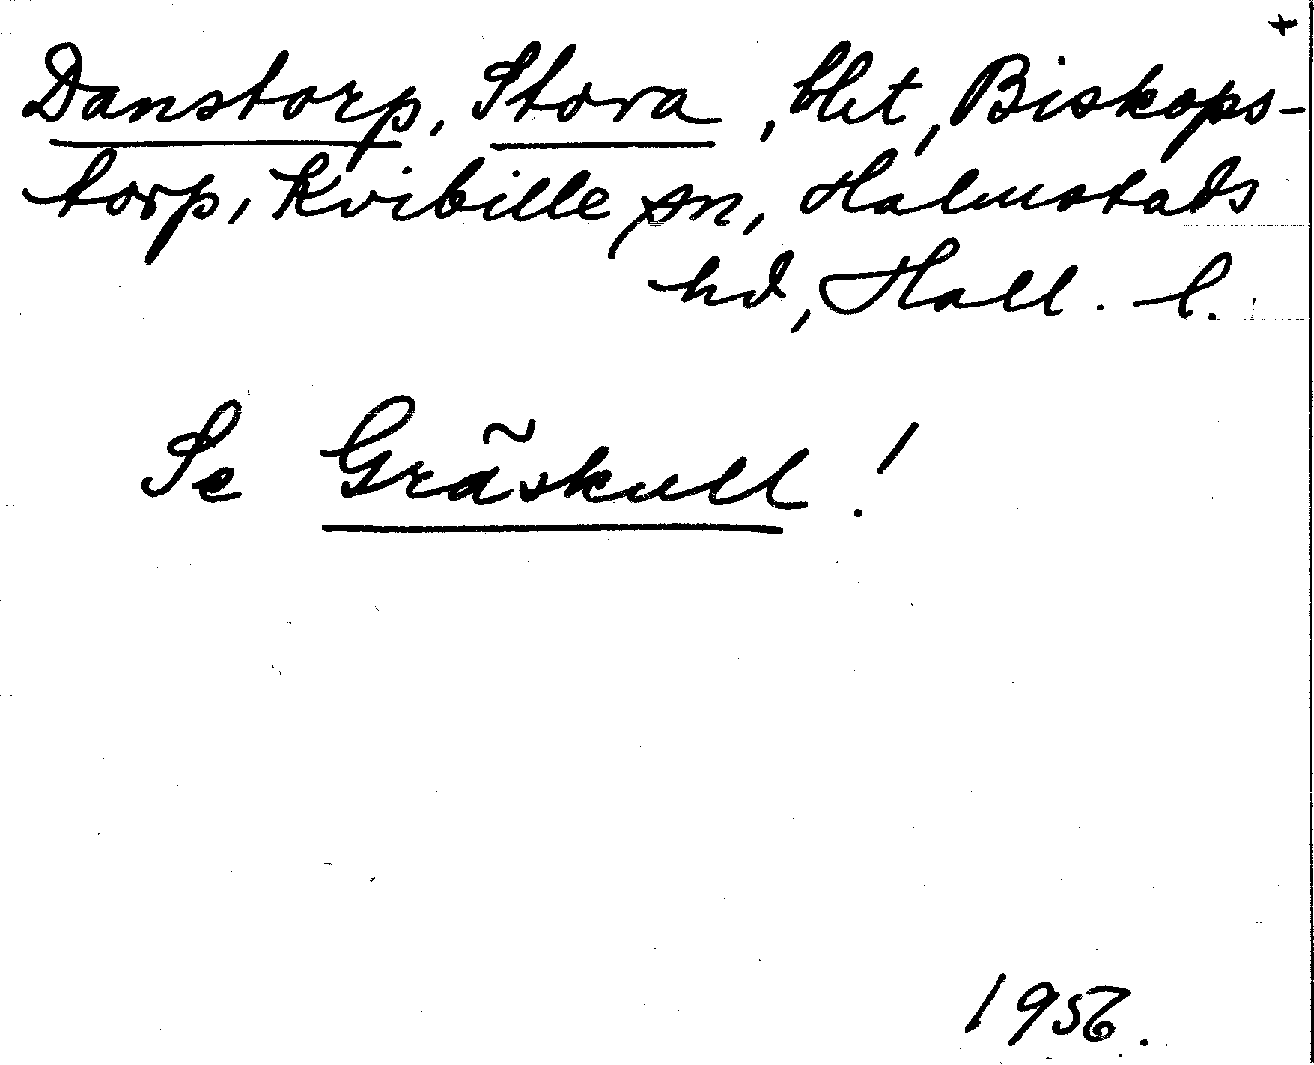 +
Danstorp, Stora, blet, Biskops-
torp, Kvibille sn, Halmstads
hd, Hall. l.
Se Gräskull!
1956.